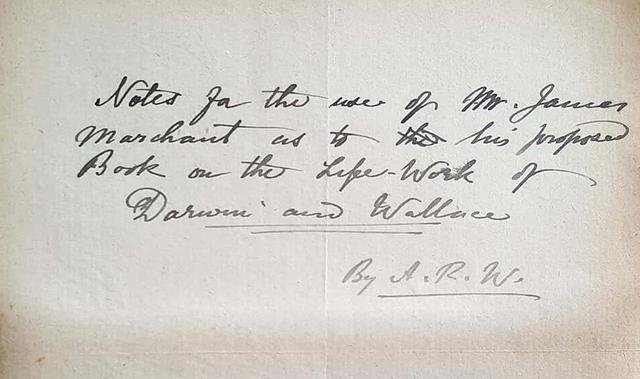 Notes for the use of Mr. James
Marchant as to the his proposed
Book on the Life-Work of
Darwin and Wallace
By A. R. W.